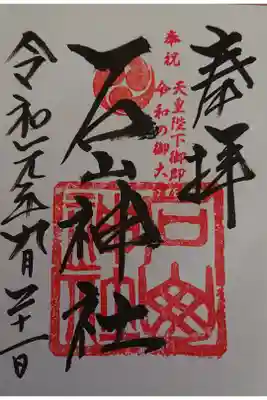 奉拝
奉祝 天皇陛下御即
令和の御大
石山神社
令和元年九月二十一日